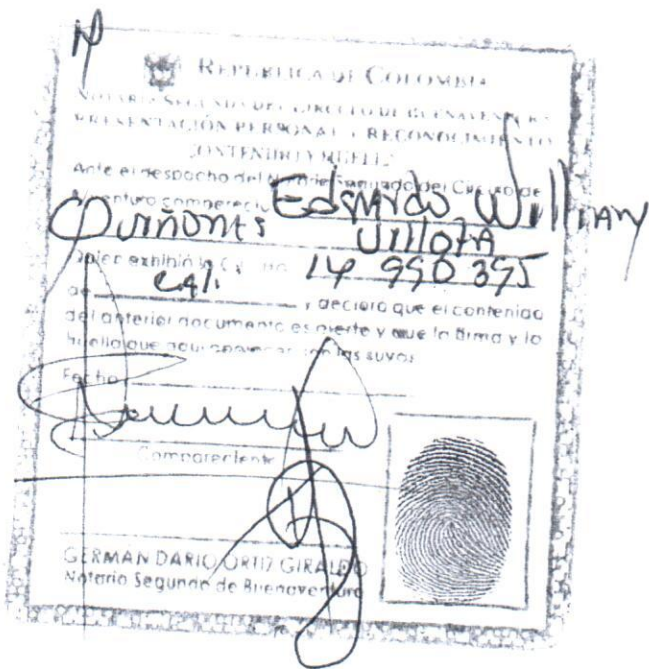 REPUBLICA DE COLOMBIA
NOTARIA SEGUNDA DEL CIRCULO DE BUENAVENTURA
PRESENTACIÓN PERSONAL Y RECONOCIMIENTO
CONTENIDO Y HUELLA
Ante el despacho del Notario Segundo del Circulo de
compareció Edgardo William
Quiñones Villota
Quien exhibió la C.C. no. 14 990 395
de Cali y declaró que el contenido
del anterior documento es cierto y que la firma y la
huella que aquí aparecen son las suyas
Fecha
Compareciente
GERMAN DARIO ORTIZ GIRALDO
Notario Segundo de Buenaventura